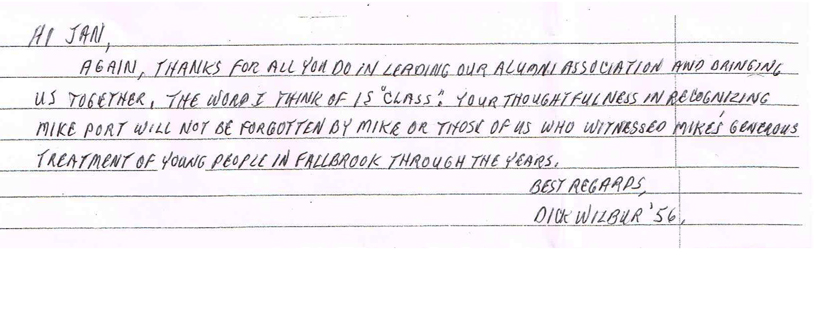 HI JAN,
AGAIN, THANKS FOR ALL YOU DO IN LEADING OUR ALUMNI ASSOCIATION AND BRINGING
US TOGETHER, THE WORD I THINK OF IS "CLASS". YOUR THOUGHTFULNESS IN RECOGNIZING
MIKE PORT WILL NOT BE FORGOTTEN BY MIKE OR THOSE OF US WHO WITNESSED MIKE'S GENEROUS
TREATMENT OF YOUNG PEOPLE IN FALLBROOK THROUGH THE YEARS.
BEST REGARDS,
DICK WILBUR '56.